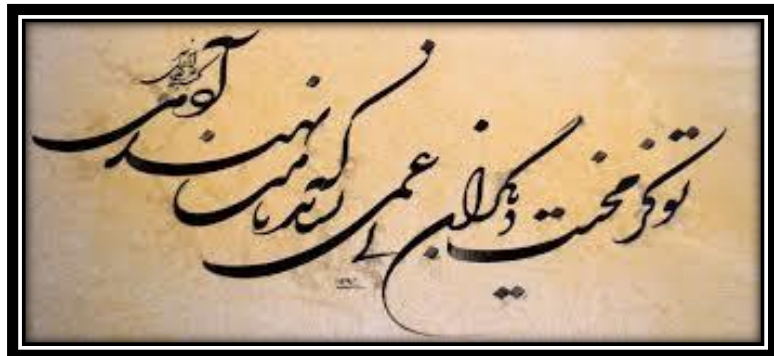 تو کز محنت دیگران بی غمی
نشاید که نامت نهند آدمی